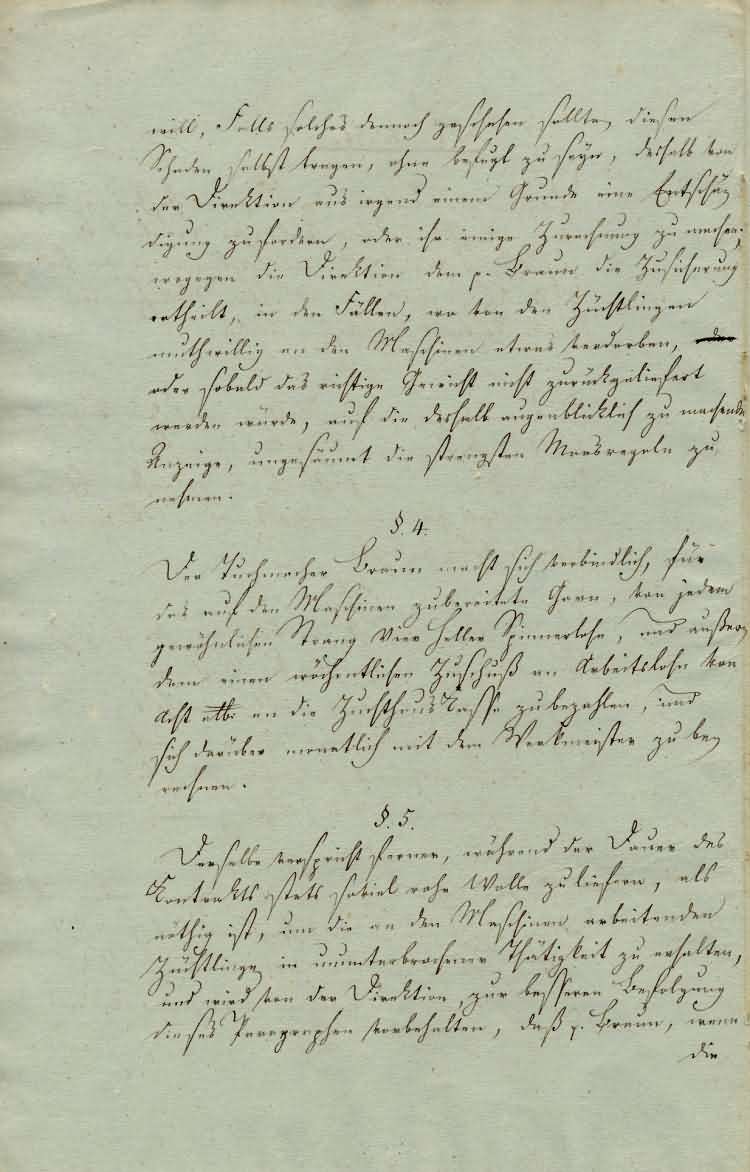 will, Falls solches dennoch geschehen sollte, diesen
Schaden selbst tragen, ohne befugt zu seyn, deshalb von
der Direktion aus irgend einem Grunde eine Entschä-
digung zu fordern, oder ihr einige Zurechnung zu machen;
wogegen die Direktion dem p. Braun die Zusicherung
ertheilt, in den Fällen, wo von den Züchtlingen
muthwillig an den Maschinen etwas verdorben,
oder sobald das richtige Gewicht nicht zurückgeliefert
werden würde, auf die deshalb augenblicklich zu machende
Anzeige, ungesäumt die strengsten Maasregeln zu
nehmen.
§. 4.
Der Tuchmacher Braun macht sich verbindlich, für
das auf den Maschinen zubereitete Garn, von jedem
gewöhnlichen Strang Vier Heller Spinnerlohn, und außer-
dem einen wöchentlichen Zuschuß an Arbeitslohn von
Acht alb: an die Zuchthaus Casse zu bezahlen, und
sich darüber monatlich mit dem Werkmeister zu be-
rechnen.
§. 5.
Derselbe verspricht ferner, während der Dauer des
Kontrakts stets soviel rohe Wolle zu liefern, als
nöthig ist, um die an den Maschinen arbeitenden
Züchtlinge in ununterbrochener Thätigkeit zu erhalten,
und wird von der Direktion, zur besseren Befolgung
dieses Paragraphen vorbehalten, daß p. Braun, wenn
die